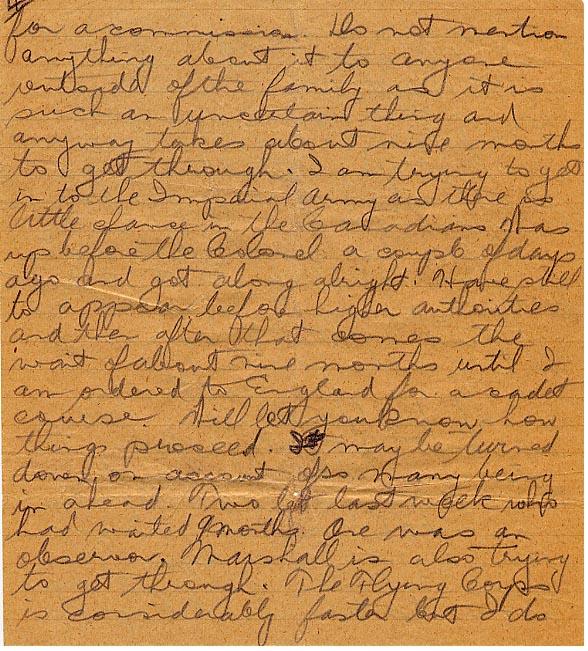 4
for a commission. Do not mention
anything about it to anyone
outside of the family as it is
such an uncertain thing and
anyway takes about nine months
to get through. I am trying to get
in to the Imperial Army as there is
little chance in the Canadians. Was
up before the Colonel a couple of days
ago and got along alright. Have still
to appear before higher authorities
and then after that comes the
wait of about nine months until I
am ordered to England for a cadet
course. Will let you know how
things proceed. I may be turned
down on account of so many being
in ahead. Two left last week who
had waited 9 months. One was an
observor. Marshall is also trying
to get through. The Flying Corps
is considerably faster but I do